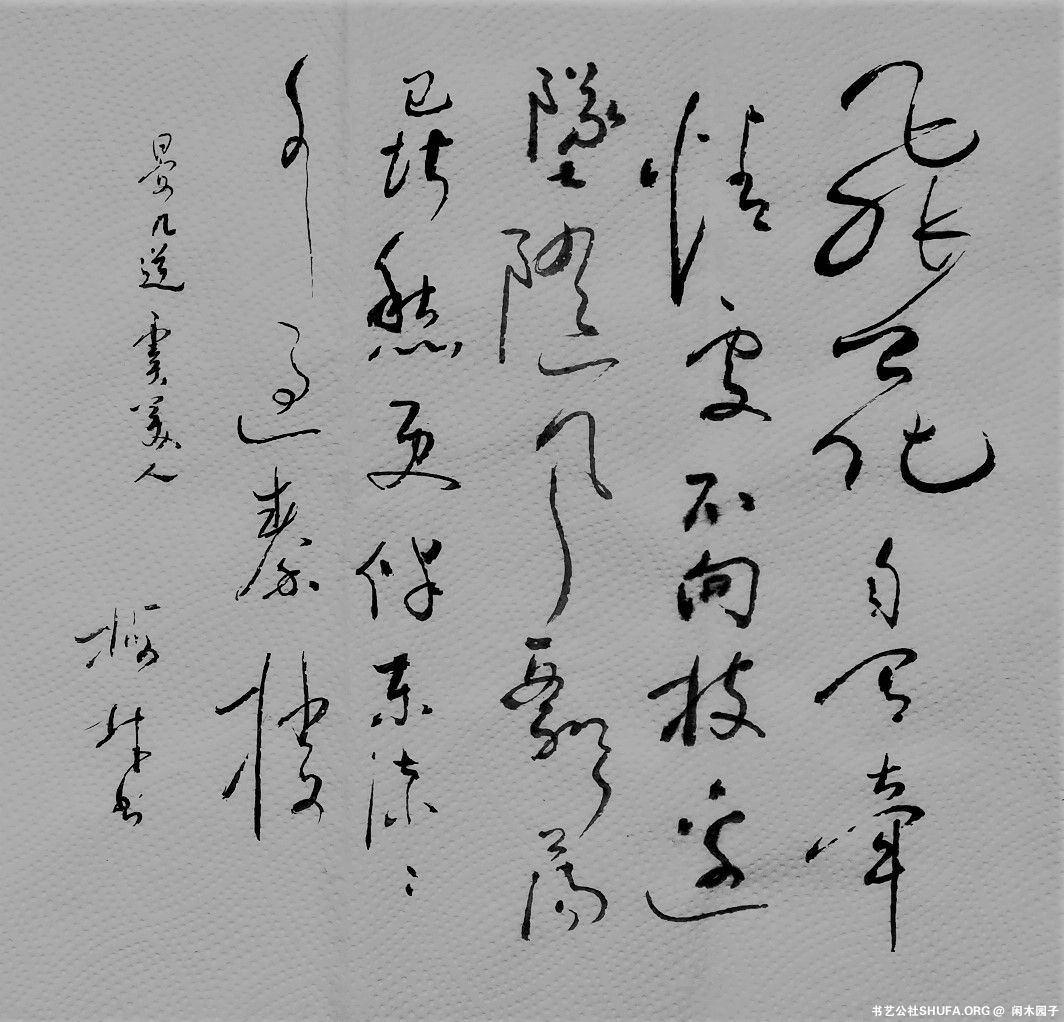 飛花自有牽
情處不向枝邊
墜隨風飄蕩
已堪愁更伴東流〻
水過秦樓
晏几道 虞美人
书
书艺公社SHUFA.ORG @ 闲木园子